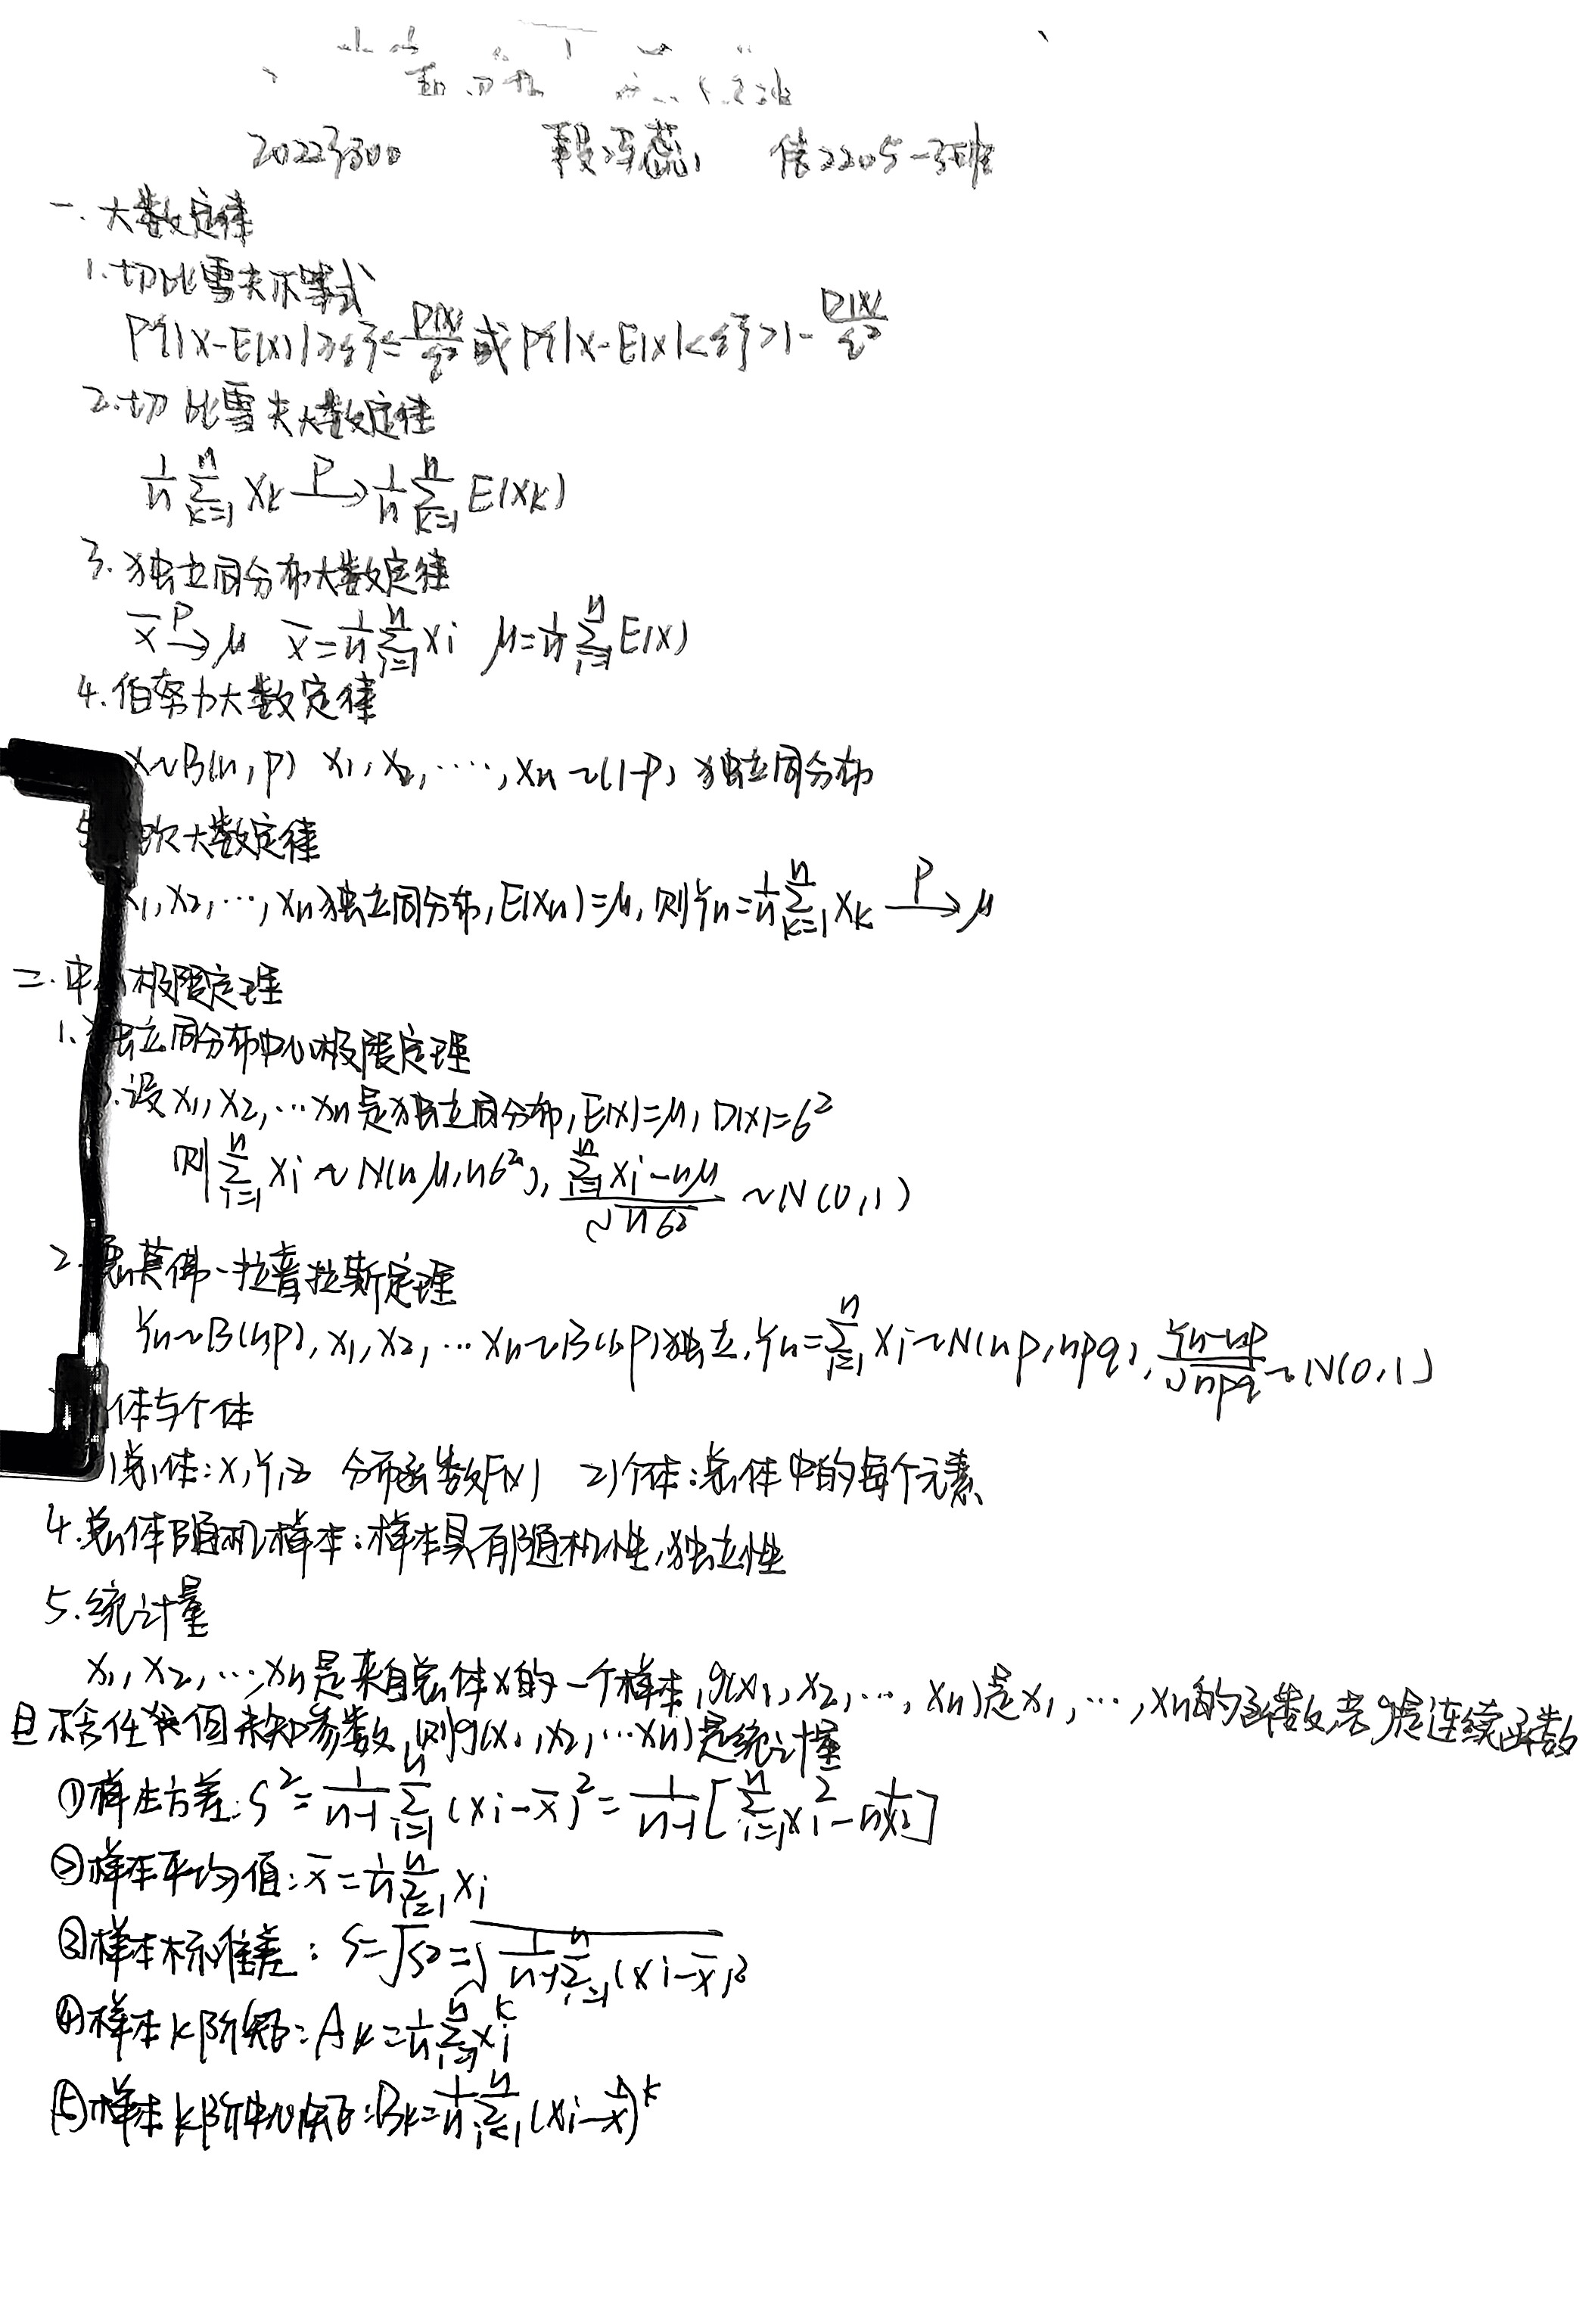 一.大数定律
1.切比雪夫不等式
P{|X-E(X)|≥ε}≤D(X)/ε² 或 P{|X-E(X)|<ε}>1-D(X)/ε²
2.切比雪夫大数定律
1/n ∑_{k=1}^{n} Xk →^P 1/n ∑_{k=1}^{n} E(Xk)
3.独立同分布大数定律
x̄ →^P μ x̄=1/n ∑_{i=1}^{n} Xi μ=1/n ∑_{i=1}^{n} E(X)
4.伯努力大数定律
X~B(n,p) X1,X2,…,Xn~(1-P) 独立同分布
5. 钦大数定律
X1,X2,…,Xn独立同分布,E(Xn)=μ,则Yn=1/n ∑_{k=1}^{n} Xk →^P μ
二.中心极限定理
1.独立同分布中心极限定理
.设X1,X2,…Xn是独立同分布,E(X)=μ,D(X)=6²
则∑_{i=1}^{n} Xi~N(nμ,n6²), (∑_{i=1}^{n} Xi-nμ)/√(n6²) ~N(0,1)
2.德莫佛-拉普拉斯定理
Yn~B(np),X1,X2,…Xn~B(1,p)独立,Yn=∑_{i=1}^{n} Xi~N(np,npq),(Yn-np)/√(npq)~N(0,1)
体与个体
1)总体:X,Y,Z 分布函数F(X) 2)个体:总体中的每个元素
4.总体随机样本:样本具有随机性,独立性
5.统计量
X1,X2,…,Xn是来自总体X的一个样本,g(X1,X2,…,Xn)是X1,…,Xn的函数,若g是连续函数
且不含任 何未知参数,则g(X1,X2,…Xn)是统计量
①样本方差:S²=1/(n-1) ∑_{i=1}^{n} (Xi-x̄)²=1/(n-1)[∑_{i=1}^{n} Xi²-nx̄²]
②样本平均值:x̄=1/n ∑_{i=1}^{n} Xi
③样本标准差:S=√S²=√(1/(n-1) ∑_{i=1}^{n} (Xi-x̄)²)
④样本k阶矩:Ak=1/n ∑_{i=1}^{n} Xi^k
⑤样本k阶中心矩:Bk=1/n ∑_{i=1}^{n} (Xi-x̄)^k